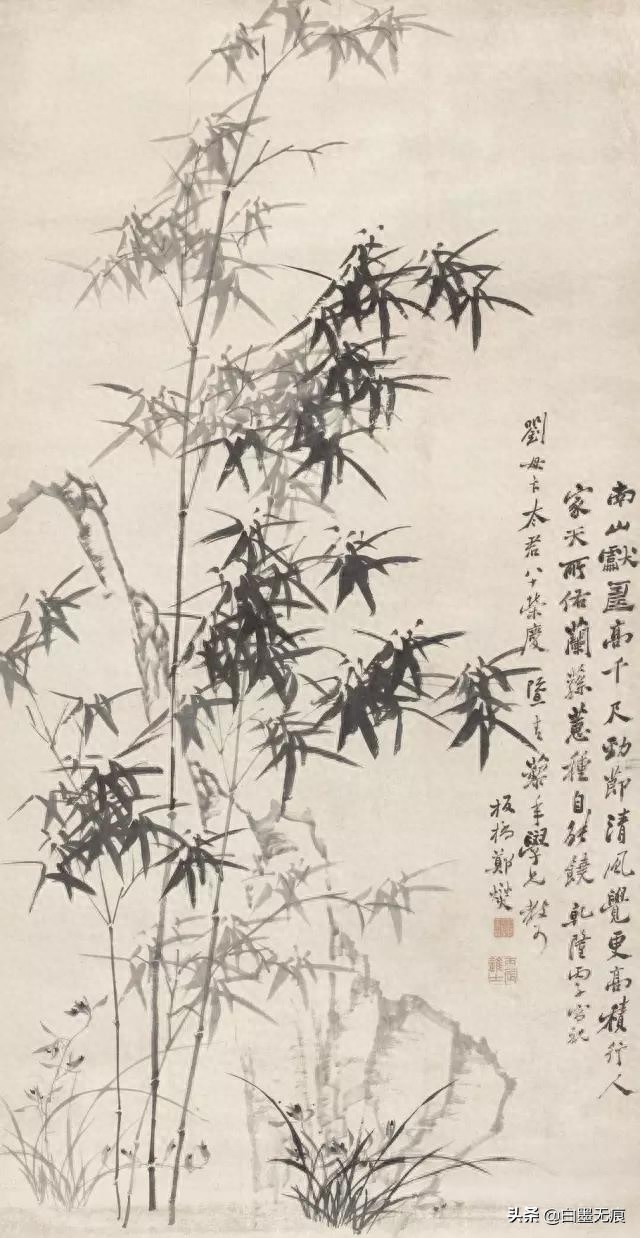 南山獻壽高千尺勁節清風覺更高積行人
家天所佑蘭蓀蕙種自能饒 乾隆丙子寫祝
劉母卞太君八十榮慶 暨青藜年學兄教可
板橋鄭燮
丙辰進士
头条 @白墨无痕